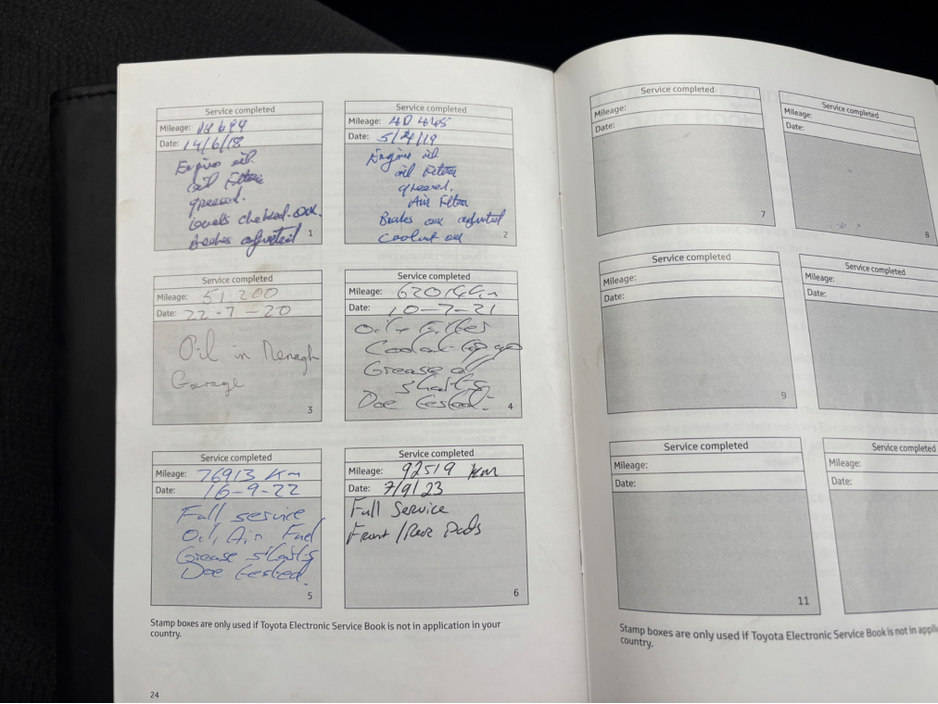 Service completed
Mileage:
Date: 14/6/18
Engine oil
oil Filter
greased.
Levels checked. ok.
Brakes adjusted
1
Service completed
Mileage: 40 445
Date: 5/4/19
Engine oil
oil Filter
greased.
Air Filter
Brakes adjusted
Coolant
2
Service completed
Mileage: 51.200
Date: 22-7-20
Oil in Nenagh
Garage
3
Service completed
Mileage:
Date: 10-7-21
Oil + Filter
Coolant top up
Grease
shafts
Doe tested.
4
Service completed
Mileage: 76913 Km
Date: 16-9-22
Full service
Oil, Air Fuel
Grease shafts
Doe tested.
5
Service completed
Mileage: 92519 km
Date: 7/9/23
Full Service
Front / Rear Pads
6
Stamp boxes are only used if Toyota Electronic Service Book is not in application in your
country.
24
Service completed
Mileage:
Date:
7
Service completed
Mileage:
Date:
8
Service completed
Mileage:
Date:
9
Service completed
Mileage:
Date:
Service completed
Mileage:
Date:
11
Service completed
Mileage:
Date:
Stamp boxes are only used if Toyota Electronic Service Book is not in appli
country.